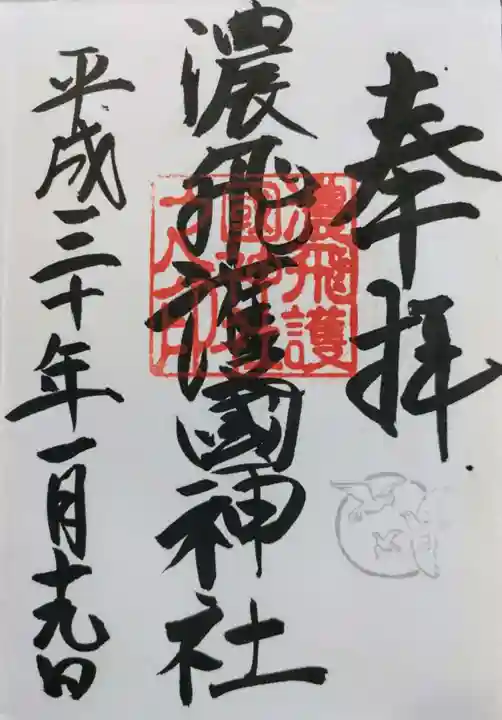 奉拝
濃飛護國神社
濃飛護
國神社
之印
平成三十年一月十九日